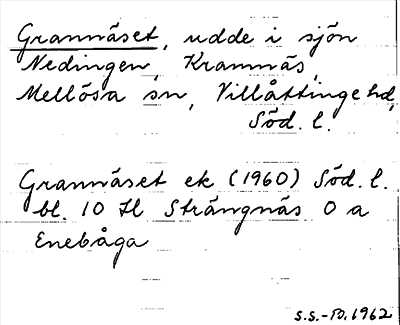 Grannäset, udde i sjön
Nedingen, Kramnäs,
Mellösa sn, Villåttinge hd,
Söd. l.
Grannäset ek (1960) Söd. l.
bl. 10 Hl Strängnäs O a
Enebåga
S.S.-D. 1962